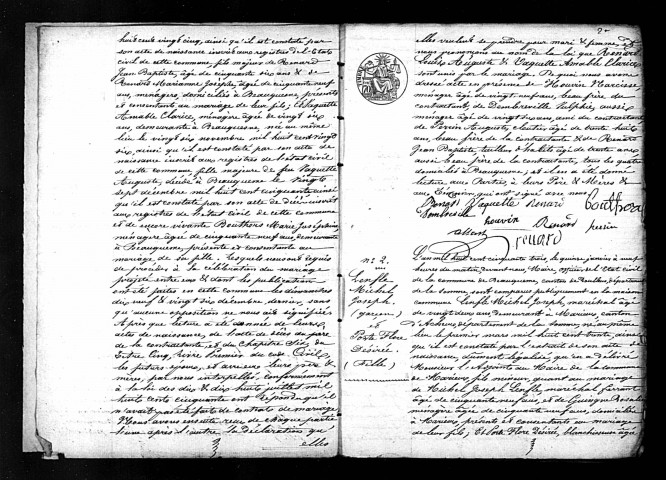 huit cent vingt cinq, ainsi qu'il est constaté par
son acte de naissance inscrit aux registres de l'Etat
civil de cette commune, fils majeur de Renard
Jean Baptiste, âgé de cinquante six ans & de
Marianne Josèphe, âgée de cinquante neuf
ans, ménagers, domiciliés à Beauquesne, présents
et consentants au mariage de leur fils; Et Vaquette
Amable Clarice, ménagère âgée de vingt six
ans, demeurante à Beauquesne, née au même
lieu le vingt six novembre mil huit cent vingt
six, ainsi qu'il est constaté par son acte de
naissance inscrit aux registres de l'état civil
de cette commune fille majeure de feu Vaquette
Auguste, décédé à Beauquesne le vingt
sept décembre mil huit cent cinquante ainsi
qu'il est constaté par son acte de décès inscrit
aux registres de l'état civil de cette commune
et de encore vivante Bouthors Marie Josèphine,
ménagère âgée de cinquante neuf ans, demeurante
à Beauquesne, présente et consentante au
mariage de sa fille. Lesquels nous ont requis
de procéder à la célébration du mariage
projeté entre eux & dont les publications
ont été faites en cette commune les dimanches
dix neuf & vingt six décembre dernier, sans
qu'aucune opposition ne nous ait été signifiée.
Après que lecture a été donnée de leurs
actes de naissance, de l'acte de décès du père
de la contractante, et du Chapitre Six du
Titre Cinq, livre Premier du code Civil,
les futurs époux, et
mères, par nous interpellés conformément
à la loi des dix & dix huit juillet mil
huit cent cinquante ont répondu qu'il
n'avait pas été fait de contrat de mariage
Nous avons ensuite reçu de chaque partie
l'une après l'autre la déclaration qu'
elles
2
elles veulent se prendre pour mari & femme, et
nous prononçons au nom de la loi que Renard
Louis Auguste & Vaquette Amable Clarice
sont unis par le mariage. De quoi nous avons
dressé acte en présence de Houvin Narcesse
ménager âgé de vingt neuf ans, beau frère du
contractant, de Dombreville Sulphie, aussi
ménager âgé de vingt six ans, ami du contractant
de Perrin Auguste, âgé de trente huit
ans, beau frère de la contractante & de Renard
Jean Baptiste, tailleur d'habits âgé de trente ans
aussi beau frère de la contractante, tous les quatre
domiciliés à Beauquesne; et il en a été donné
lecture aux Parties, à leurs Père & Mères &
aux témoins, qui ont signé avec nous.
Renard Vaquette renard Bouthors
houvin Renard perrin
renard
N° 2.
Lenfle
Michel
Joseph.
(garçon)
et
Porte Flore
Désirée.
(Fille)
L'an mil huit cent cinquante trois, le quinze janvier à neuf
heures du matin, devant nous Maire, officier de l'état civil
de la commune de Beauquesne, canton de Doullens, département
de la Somme, sont comparus publiquement en la maison
commune Lenfle Michel Joseph, maréchal âgé
de vingt deux ans demeurant à Marieux, canton
d'Acheux, département de la Somme, né au même
lieu le premier mars mil huit cent trente, ainsi
qu'il est constaté par l'extrait de son acte de
naissance, dûment légalisé, qui en a délivré
Monsieur l'Adjoint au Maire de la commune
de Marieux, fils mineur, quant au mariage
de Michel Joseph Lenfle, maréchal ferrant
âgé de cinquante neuf ans, et de Guergon Rosalie
ménagère âgée de cinquante neuf ans, domiciliés
à Marieux, présents et consentants au mariage
de leur fils; Et Porte Flore Désirée, blanchisseuse âgée